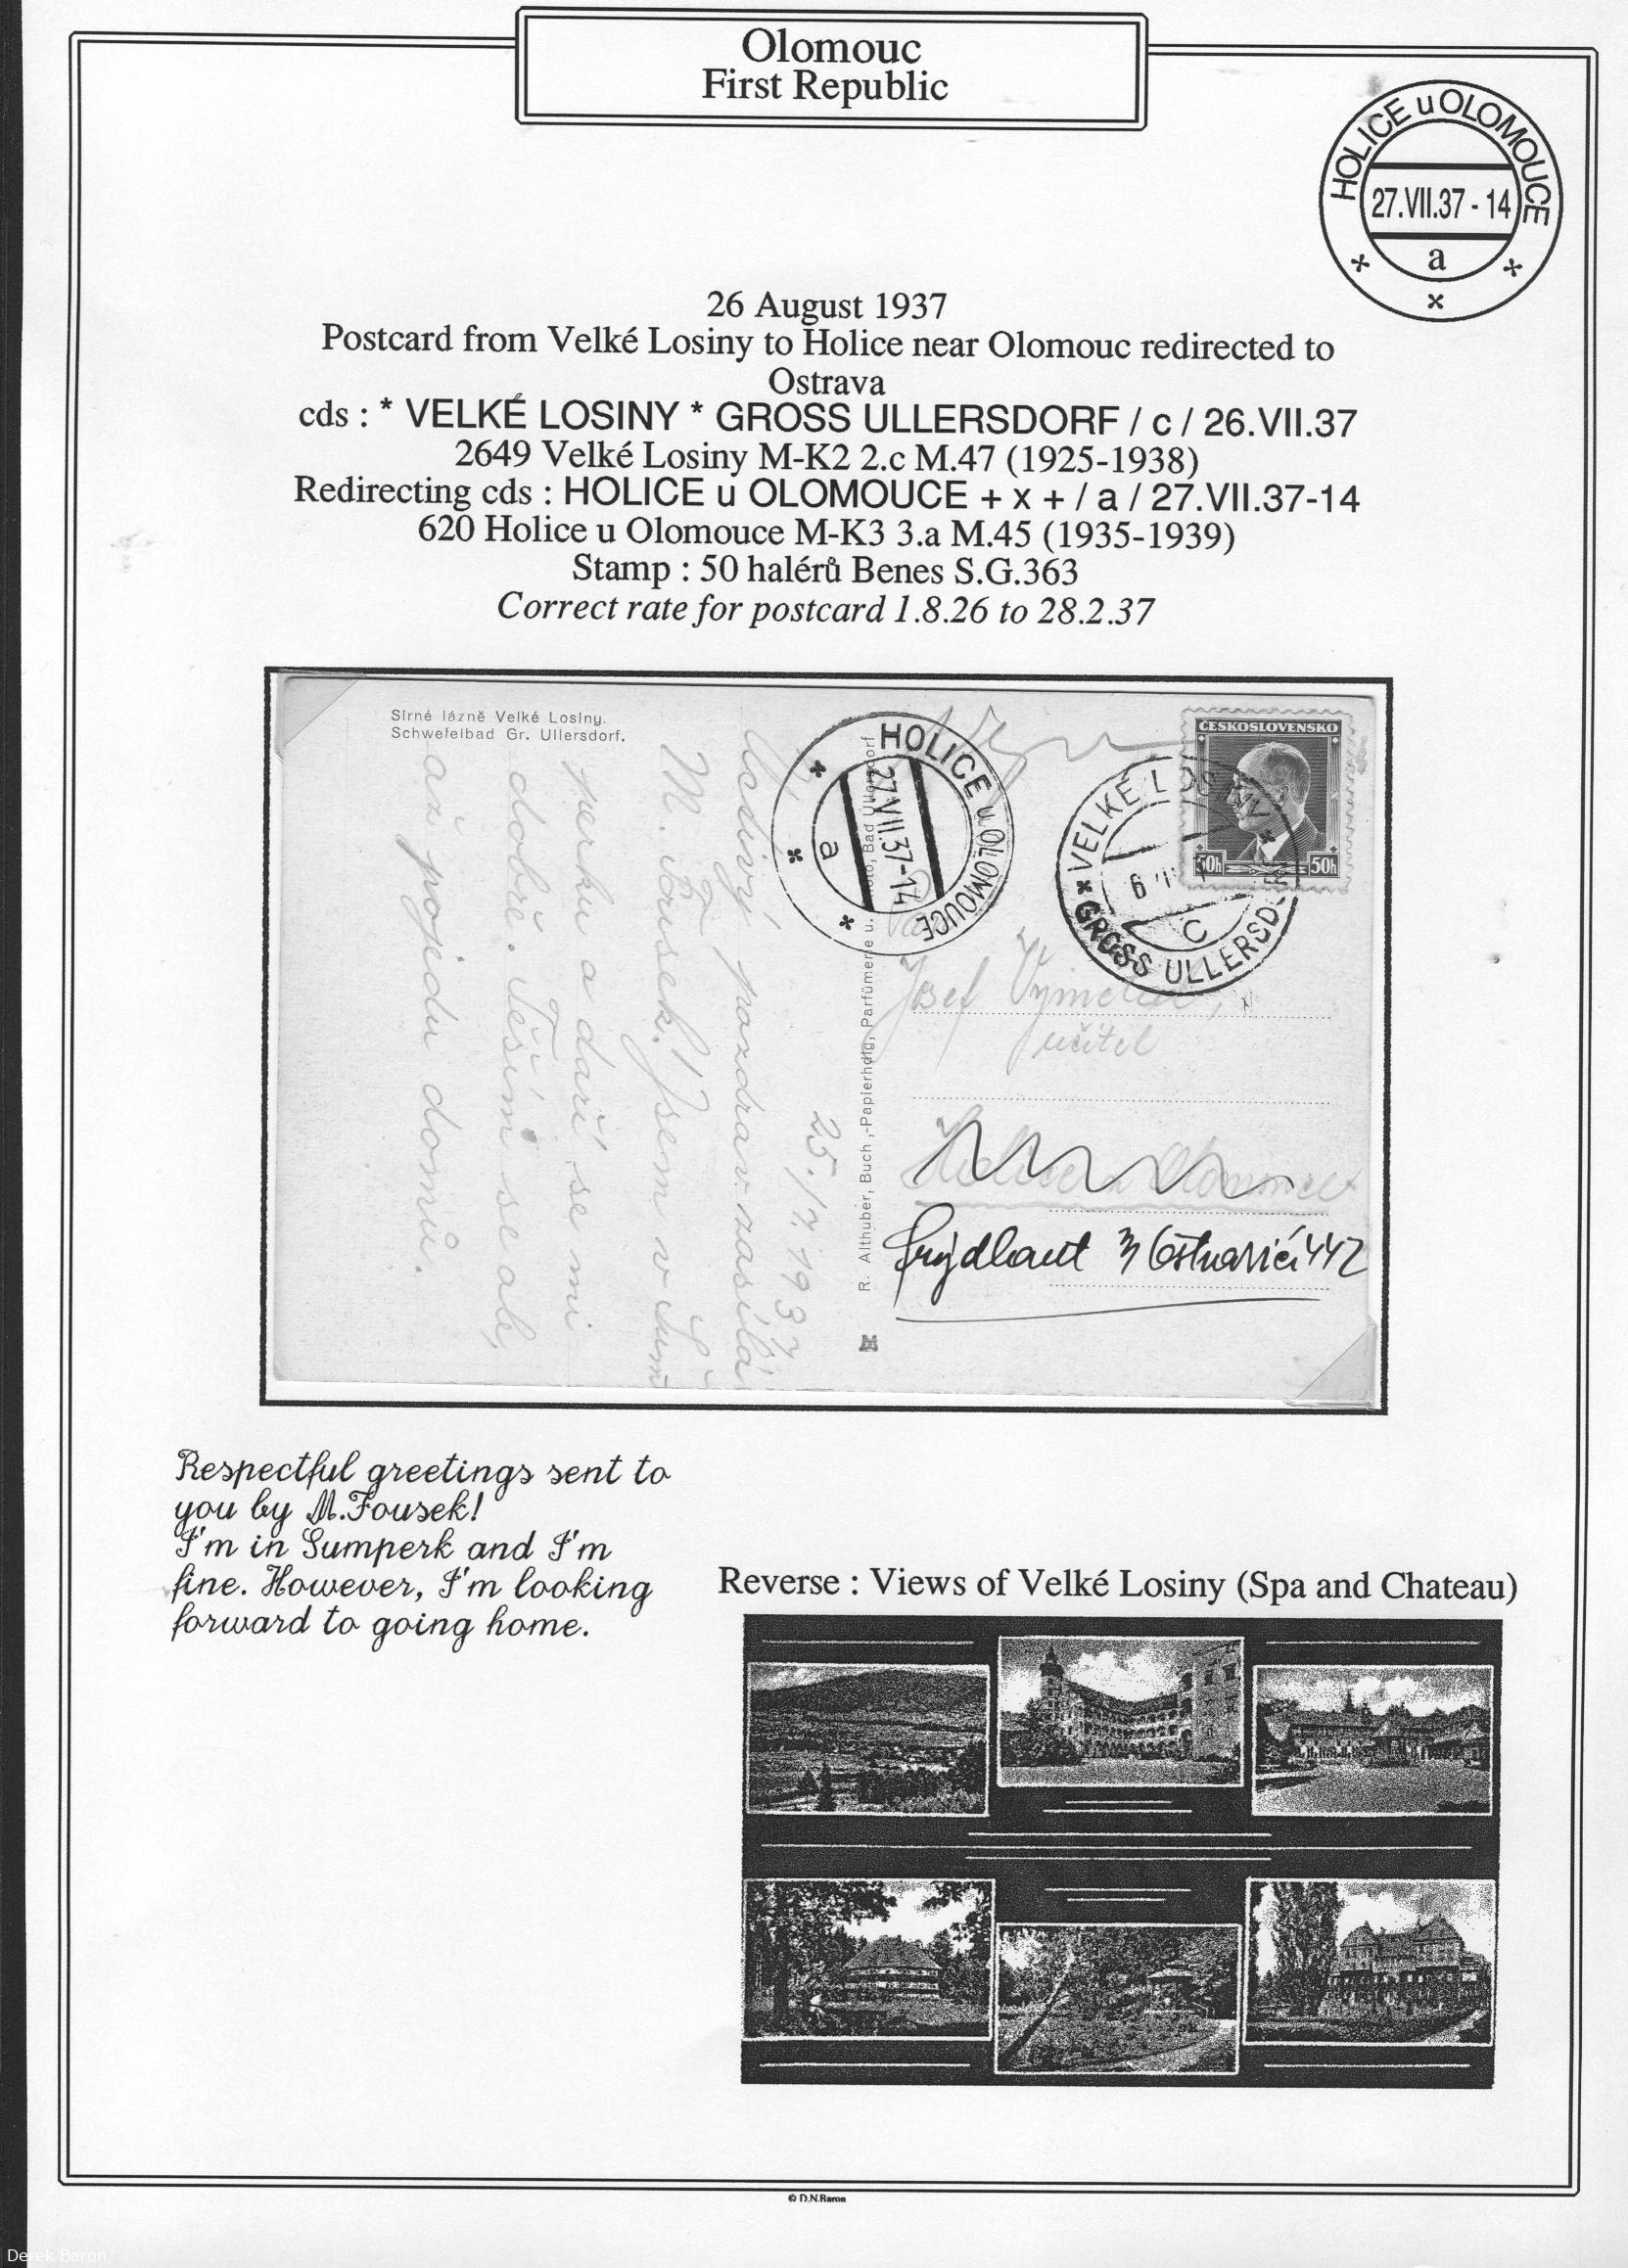 Olomouc
First Republic
HOLICE u OLOMOUCE
27.VII.37 - 14
a
26 August 1937
Postcard from Velké Losiny to Holice near Olomouc redirected to
Ostrava
cds : * VELKÉ LOSINY * GROSS ULLERSDORF / c / 26.VII.37
2649 Velké Losiny M-K2 2.c M.47 (1925-1938)
Redirecting cds : HOLICE u OLOMOUCE + x + / a / 27.VII.37-14
620 Holice u Olomouce M-K3 3.a M.45 (1935-1939)
Stamp : 50 halérů Benes S.G.363
Correct rate for postcard 1.8.26 to 28.2.37
Sirné lázně Velké Losiny.
Schwefelbad Gr. Ullersdorf.
25./7. 1937
Uctivý pozdrav zasílá
M. Fousek! Jsem v Šum
perku a daří se mi
dobře. Těším se ale,
až pojedu domů.
HOLICE u OLOMOUCE
27.VII.37-14
a
R. Althuber, Buch,-Papierhdlg, Parfümerie u. Foto, Bad Ullersdorf
ČESKOSLOVENSKO
50h 50h
VELKÉ LOSINY
6
c
GROSS ULLERSD
Josef
učitel
Holice u Olomouce
Frýdlant
442
Respectful greetings sent to
you by M.Fousek!
I'm in Sumperk and I'm
fine. However, I'm looking
forward to going home.
Reverse : Views of Velké Losiny (Spa and Chateau)
© D.N.Baron
Derek Baron